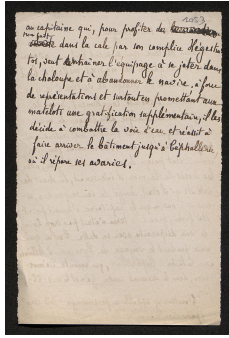 1053
au capitaine qui, pour profiter du
dans la cale par son complice Hégestra-
tos, veut entraîner l'équipage à se jeter dans
la chaloupe et à abandonner le navire. à force
de représentations et surtout en promettant aux
matelots une gratification supplémentaire, il les
décide à combattre la voie d'eau et réussit à
faire arriver le bâtiment jusqu'à Céphallénie
où il répare ses avaries.